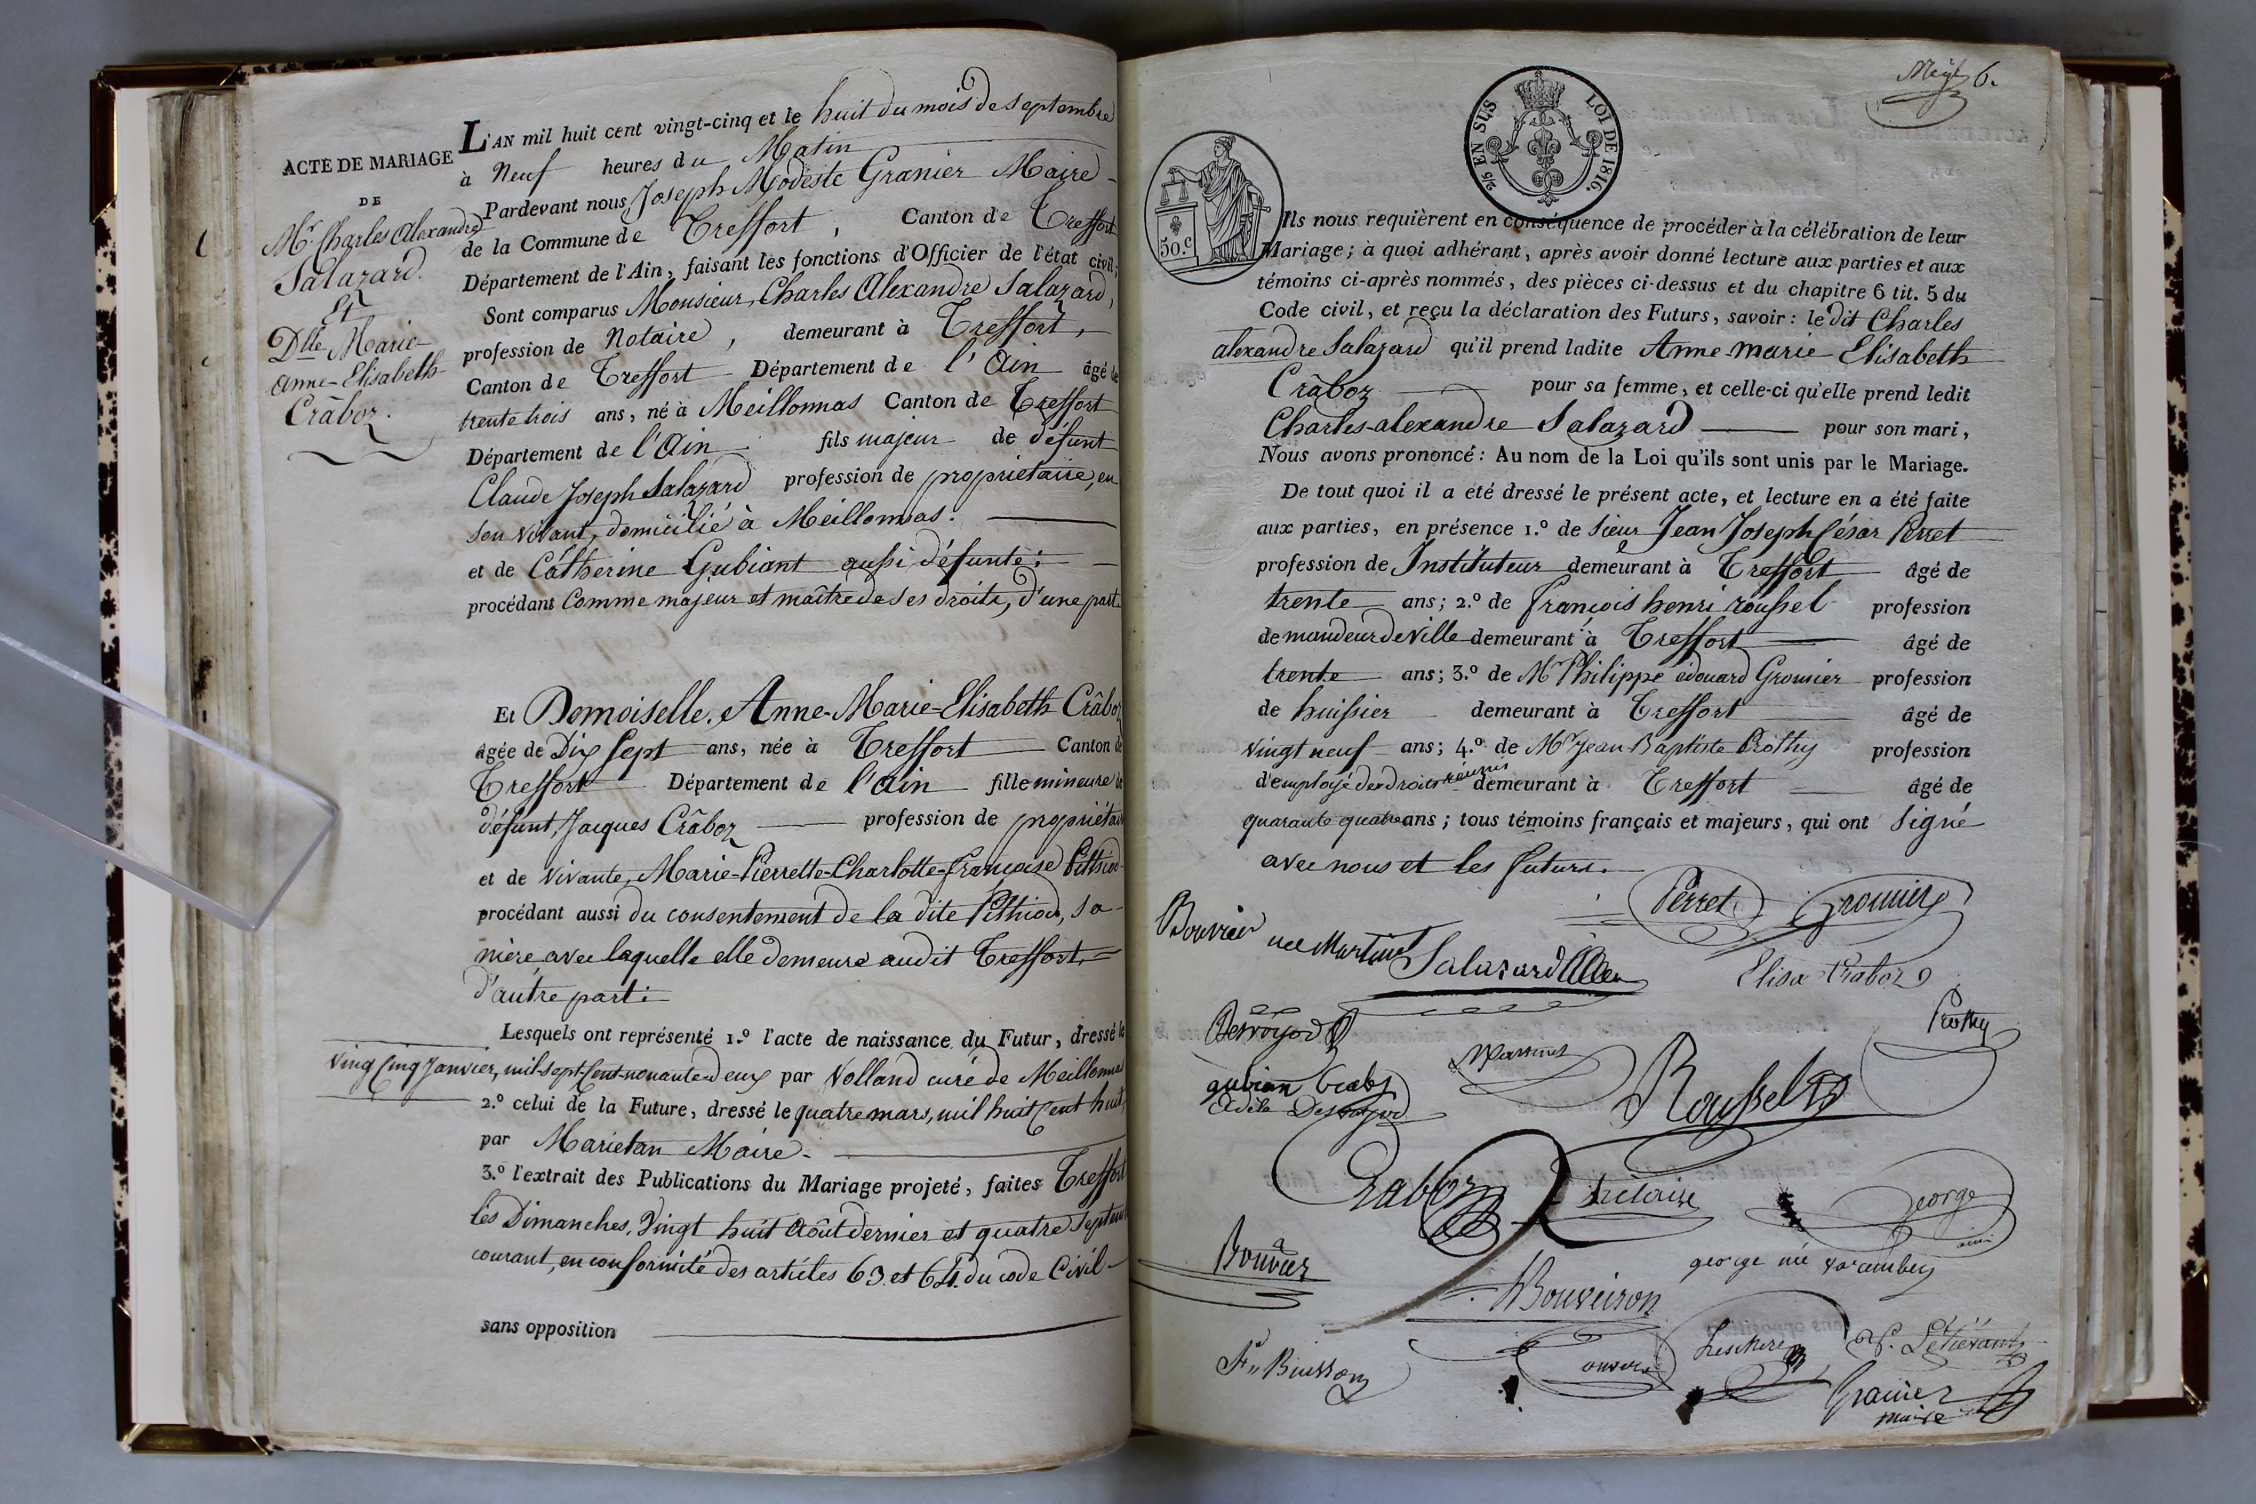 ACTE DE MARIAGE
DE
Mr. Charles Alexandre
Salazard.
Et
Dlle Marie-
Anne-Elisabeth
Crâboz.
L'AN mil huit cent vingt-cinq et le huit du mois de septembre
à Neuf heures du Matin
Pardevant nous Joseph Modeste Granier Maire
de la Commune de Treffort, Canton de Treffort
Département de l'Ain, faisant les fonctions d'Officier de l'état civil;
Sont comparus Monsieur, Charles Alexandre Salazard,
profession de Notaire, demeurant à Treffort,
Canton de Treffort Département de l'Ain âgé de
trente trois ans, né à Meillonnas Canton de Treffort
Département de l'Ain fils majeur de défunt
Claude Joseph Salazard profession de propriétaire, en
son vivant, domicilié à Meillonnas.
et de Catherine Gubiant aussi défunte;
procédant comme majeur et maître de ses droits, d'une part.
Et Demoiselle, Anne-Marie-Elisabeth Crâboz
âgée de Dix sept ans, née à Treffort Canton de
Treffort Département de l'Ain fille mineure de
défunt, Jacques Crâboz profession de propriétaire
et de vivante, Marie-Pierrette-Charlotte-françoise Pithiod
procédant aussi du consentement de la dite Pithiod, sa
mère, avec laquelle elle demeure audit Treffort,
d'autre part:
Lesquels ont représenté 1.º l'acte de naissance du Futur, dressé le
vingt cinq Janvier, mil-sept-cent-nonante deux par Volland curé de Meillonnas
2.º celui de la Future, dressé le quatre mars, mil huit cent huit,
par Marietan Maire.
3.º l'extrait des Publications du Mariage projeté, faites Treffort
les Dimanches, Vingt huit Août dernier et quatre Septembre
courant, en conformité des articles 63 et 64. du code Civil
sans opposition
6.
2/5 EN SUS LOI DE 1816.
50.c
Ils nous requièrent en conséquence de procéder à la célébration de leur
Mariage; à quoi adhérant, après avoir donné lecture aux parties et aux
témoins ci-après nommés, des pièces ci-dessus et du chapitre 6 tit. 5 du
Code civil, et reçu la déclaration des Futurs, savoir: le dit Charles
alexandre Salazard qu'il prend ladite Anne-marie Elisabeth
Crâboz pour sa femme, et celle-ci qu'elle prend ledit
Charles-alexandre Salazard pour son mari,
Nous avons prononcé: Au nom de la Loi qu'ils sont unis par le Mariage.
De tout quoi il a été dressé le présent acte, et lecture en a été faite
aux parties, en présence 1.º de sieur Jean Joseph César Perret
profession de Instituteur demeurant à Treffort âgé de
trente ans; 2.º de françois henri roussel profession
de mandeur de ville demeurant à Treffort âgé de
trente ans; 3.º de Mr Philippe édouard Gromier profession
de huissier demeurant à Treffort âgé de
vingt neuf ans; 4.º de Mr Jean Baptiste Prothy profession
d'employé des droits réunis demeurant à Treffort âgé de
quarante quatre ans; tous témoins français et majeurs, qui ont signé
avec nous et les futurs.
Perret Gromier
Bouvier née Martinet Salazard Elisa Craboz
Desvoyod Prothy
Martinet
gubian
Adèle Desvoyod Rousselet
Craboz George
Bouvier george née varambey
Bouveiron
Fs Buisson
Granier
maire